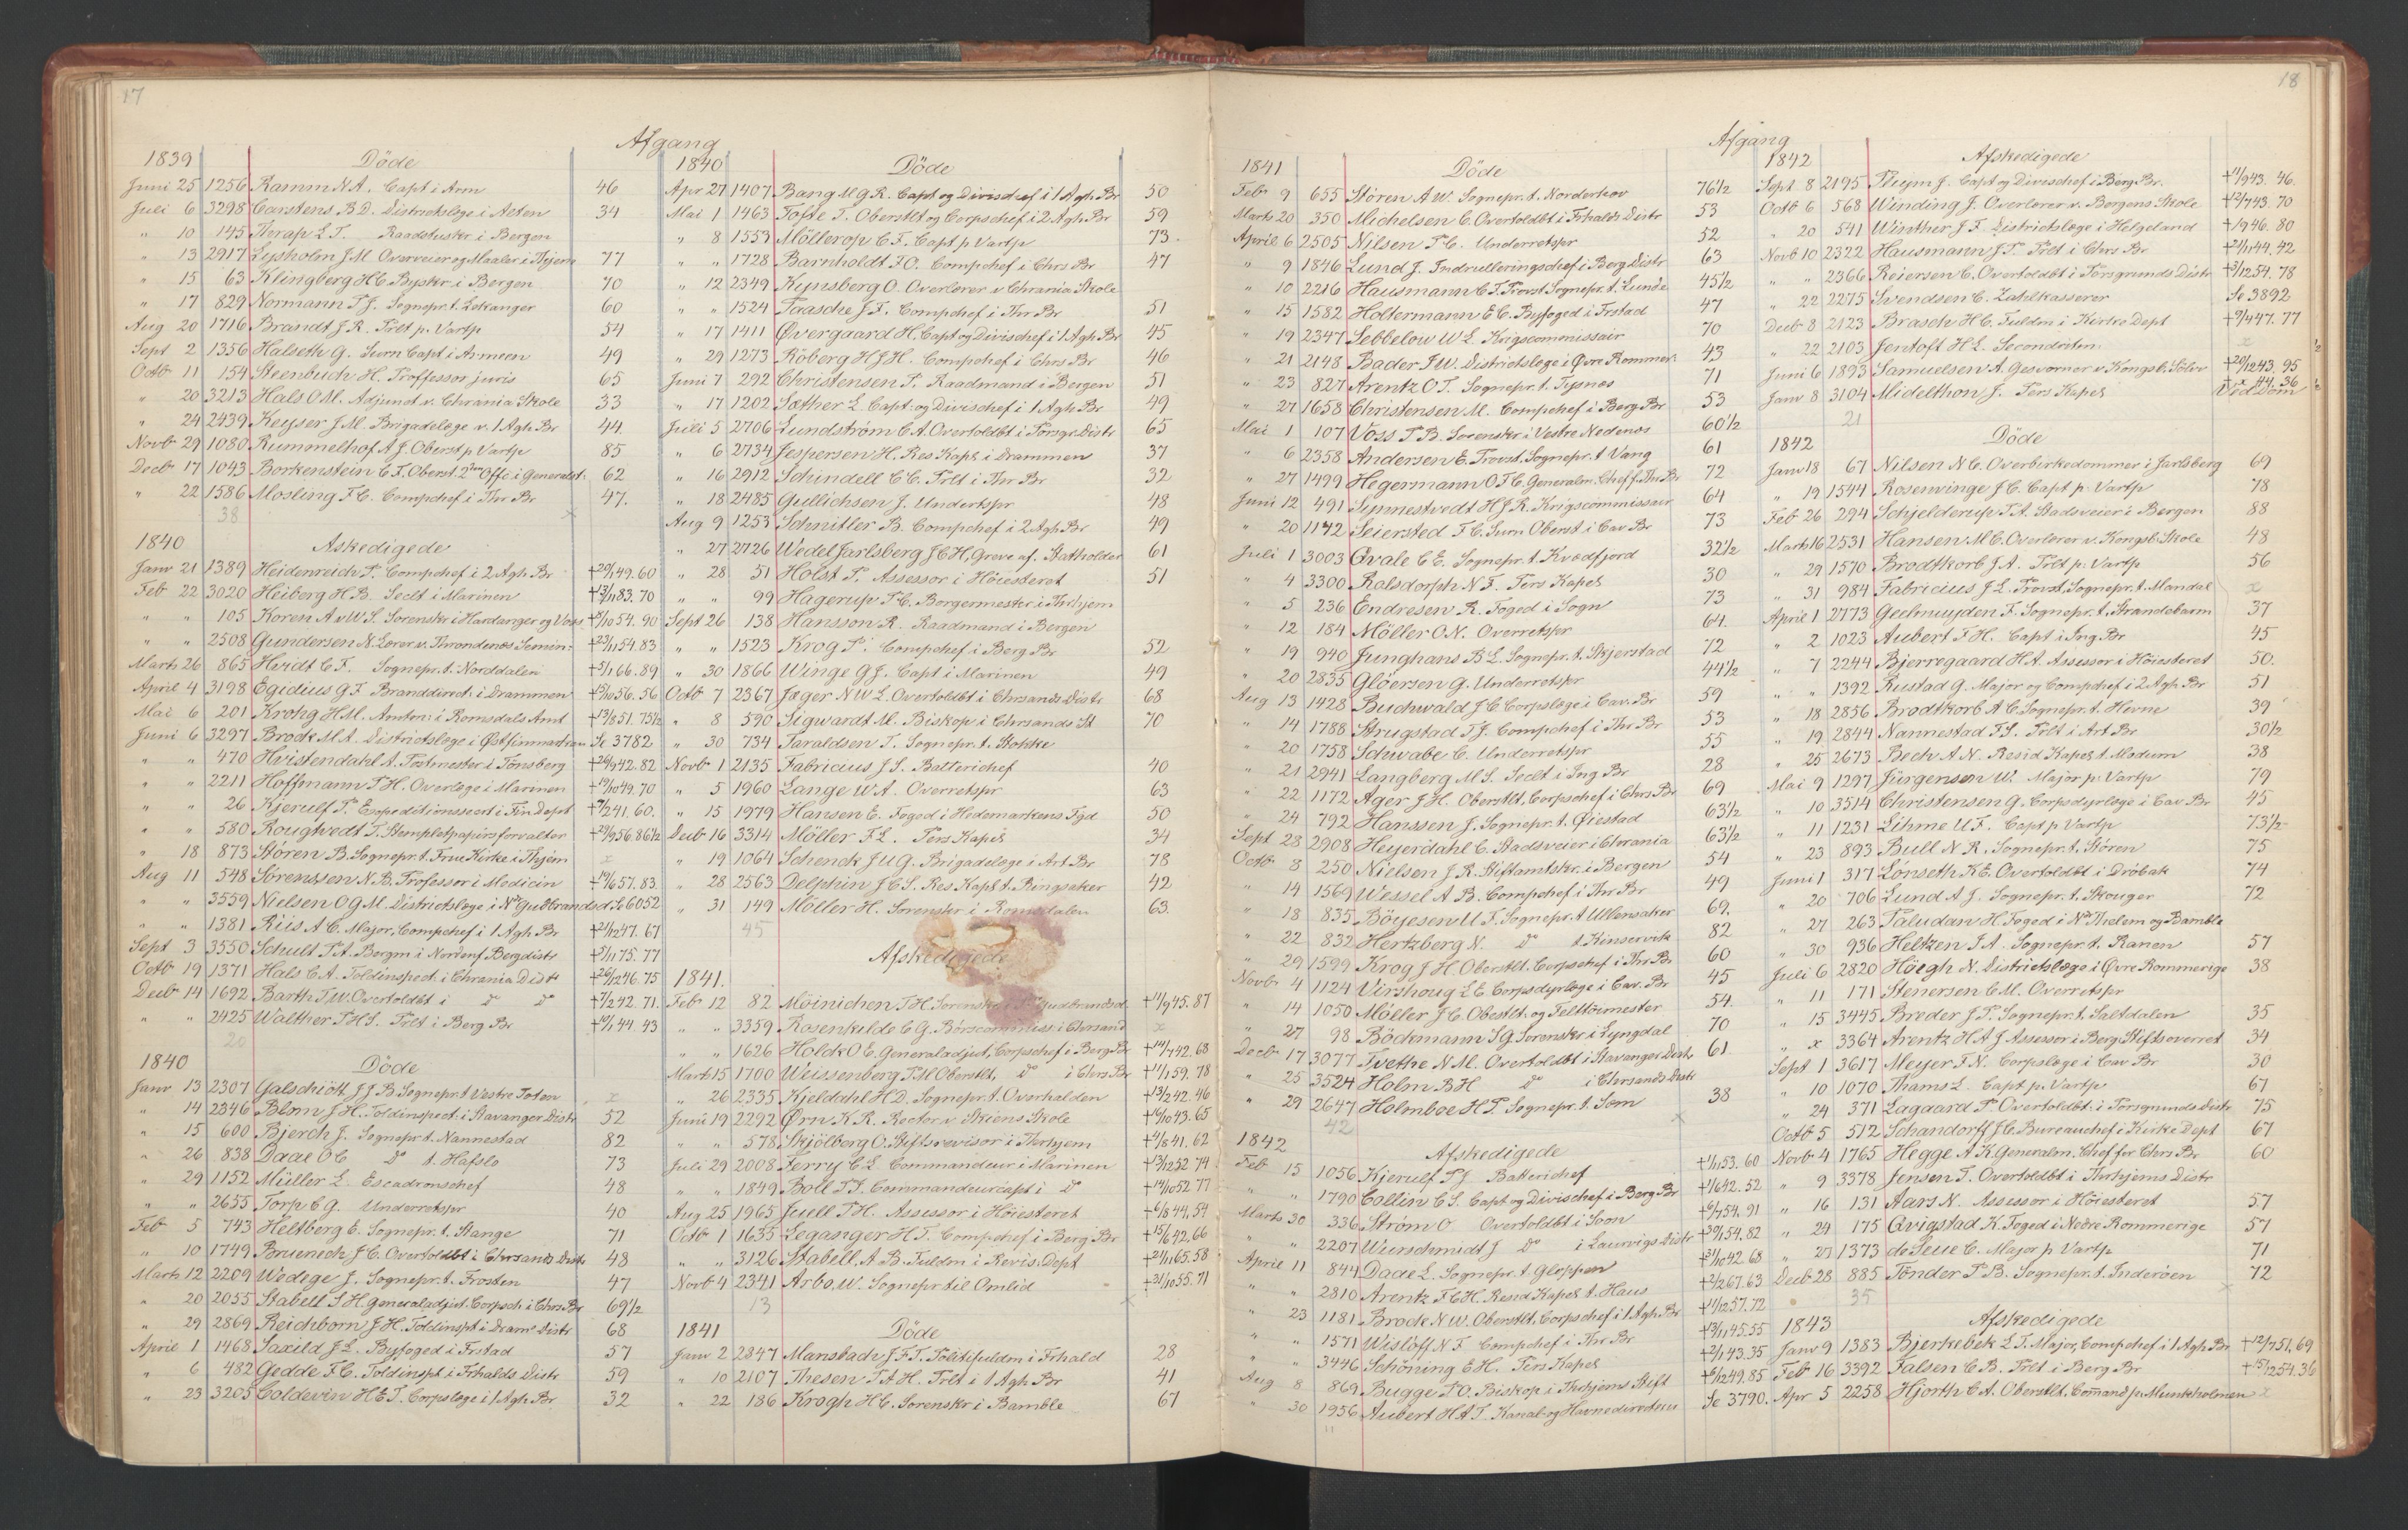 17
Afgang
1839 Döde
Juni 25 1256 Ramm N A. Capt i Arm 46
Juli 6 3298 Carstens B D. Districtslæge i Alten 34
" 10 145 Therap L T. Raadstuskr i Bergen
" 13 2917 Lysholm J M Overveier og Maaler i Thjem 77
" 15 63 Klingberg H C Byskr i Bergen 70
" 17 829 Normann P J. Sognepr. t. Lekanger 60
Aug 20 1716 Brandt J R. Prlt p. Vartp 54
Sept 2 1356 Halseth G. Surn Capt i Armeen 49
Octb 11 154 Steenbuch H. Proffessor juris 65
" 20 3213 Hals O M. Adjunct v. Chrania Skole 33
" 24 2439 Keyser J M. Brigadelæge v. 1 Agh Br 44
Novb 29 1080 Rummelhof A J. Oberst p Vartp 85
Decb 17 1043 Borkenstein C F. Oberst. 2den Offc i Generalst: 62
" 22 1586 Mosling F C. Compchef i Thr Br 47.
38
1840 Askedigede
Janv 21 1389 Heidenreich P. Compchef i 2 Agh Br +20/1 49. 60
Feb 22 3020 Heiberg H B. Seclt i Marinen +13/11 83. 70
" " 105 Koren A v W S. Sorenskr i Hardanger og Voss +8/10 54. 90
" " 2508 Gundersen N. Lærer v. Throndenæs Semin: +23/11 54. 83
Marts 26 865 Hvidt C F. Sognepr. t. Norddalen +5/1 66. 89
April 4 3198 Egidius G F. Branddirect: i Drammen
Mai 6 201 Krohg H M. Amtm: i Romsdals Amt +13/8 51. 75½
Juni 6 3297 Brock M A. Districtslæge i Østfinmarken Se 3782
" " 470 Hvistendahl A. Postmester i Tönsberg +26/9 42. 82
" " 2211 Hoffmann P H. Overlæge i Marinen +19/10 49. 70
" " 26 Kjerulf P. Expeditionssecrt i Fin Dept +7/2 41. 60.
" " 580 Rougtvedt T. Stempletpapirsforvalter
" 18 873 Stören B. Sognepr. t. Frue Kirke i Thjem x
Aug 11 548 Sörenssen N. B. Professor i Medicin +19/6 57. 83.
" " 3559 Nielsen O G M. Districtslæge i Nd Gulbrandsd Se 6052
" " 1381 Riis A C. Major, Compchef i 1 Agh Br +21/12 47. 67
Sept 3 3550 Schult P A. Bergm i Nordenf Bergdistr
Octb 19 1371 Hals C A. Toldinspect. i Chrania Distr +26/12 46. 75
Decb 14 1692 Barth T. W. Overtoldbt i do do +7/2 42. 71.
" " 2425 Walther P H S. Prlt i Berg Br +10/1 44. 43
20
1840 Döde
Janv 13 2307 Galschiött J J B. Sognepr. t Vestre Toten x
" 14 2346 Blom J H. Toldinspect. i Stavanger Distr 52
" 15 600 Bjerch J. Sognepr t. Nannestad 82
" 26 838 Daae O C do t. Hafslo 73
" 29 1152 Müller L. Escadronschef 48
" " 2655 Torp C G. Underretspr 40
Feb 5 743 Heltberg E. Sognepr. t. Stange 71
" 10 1749 Bruenech J C. Overtoldbt i Chrsands Distr 48
Marts 12 2209 Wedege J. Sognepr. t. Frosten 47
" 20 2055 Stabell S H. Generaladjut. Corpsch i Chrs Br 69½
" 29 2869 Reichborn J H. Toldinspt i Dramr Distr 68
April 1 1468 Saxild J L. Byfoged i Frstad 57
" 6 482 Gedde F C. Toldinspt i Frhalds Distr 59
" 23 3205 Coldevin H E T. Corpslæge i 1 Agh Br 32
1840 Döde
Apr 27 1407 Bang M G R. Capt og Divischef i 1 Agh Br 50
Mai 1 1463 Tofte T. Oberstlt og Corpschef i 2 Agh Br 59
" 8 1553 Möllerop C F. Capt p Vartp 73.
" " 1728 Barnholdt F O. Compchef i Chrs Br 47
" 12 2349 Kynsberg O. Overlærer v Chrania Skole
" " 1524 Taasche J F. Compchef i Thr Br 51
" 17 1411 Øvergaard H. Capt og Divischef i 1 Agh Br 45
" 29 1273 Röberg H J H. Compchef i Chrs Br 46
Juni 7 292 Christensen P. Raadmand i Bergen 51
" 17 1202 Sæther L. Capt: og Divischef i 1 Agh Br 49
Juli 5 2706 Lundström C A. Overtoldbt i Porsgr. Distr 65
" 6 2734 Jespersen H. Res Kapel i Drammen 37
" 16 2912 Schindell C C. Prlt i Thr Br 32
" 18 2485 Gullichsen J. Undertspr 48
Aug 9 1253 Schnitler B. Compchef i 2 Agh Br 49
" 27 2726 Wedel Jarlsberg J C H, Greve af. Statholder 61
" 28 51 Holst P. Assessor i Höiesteret 51
" " 99 Hagerup P C. Borgermester i Thrhjem
Sept 26 138 Hansson R. Raadmand i Bergen
" " 1523 Krog P. Compchef i Berg Br 52
" 30 1866 Winge G J. Capt i Marinen 49
Octb 7 2367 Jæger N W L. Overtoldbt i Chrsands Distr 68
" 8 590 Sigwardt M. Biskop i Chrsands St 70
" 30 734 Taraldsen T. Sognepr. t. Stokke
Novb 1 2135 Fabricius J S. Batterichef 40
" 5 1960 Lange W A. Overretspr 63
" 15 1979 Hansen E. Foged i Hedemarkens Fgd 50
Decb 16 3314 Möller F L. Pers Kapel 34
" 19 1064 Schenck J U G. Brigadelæge i Art Br 78
" 28 2563 Delphin J C S. Res Kapl t. Ringsaker 42
" 31 149 Möller H. Sorenskr i Romsdalen 63.
45
Afskedigede
1841.
Feb 12 82 Möinichen T H. Sorenskr i Gudbrandsd +11/9 45. 87
" " 3359 Rosenkilde C G. Börscommiss: i Chrsand x
" " 1626 Holck O E. Generaladjut, Corpschef i Berg Br +14/7 42. 68
Marts 15 1700 Weissenberg P M Oberstlt, do i Chrs Br +11/1 59. 78
" 26 2335 Kjeldahl H D. Sognepr. t. Overhalden +13/2 42. 46
Juni 19 2292 Ørn K R. Rector v Skiens Skole +16/10 43. 65
" " 578 Skjölberg O. Stiftsrevisor i Thrhjem +4/8 41. 62
Juli 29 2008 Ferry C L. Commandeur i Marinen +13/12 52 74
" " 1849 Boll P P. Commandeurcapt i do +14/10 52 77
Aug 25 1965 Juell P H. Assessor i Höiesteret +6/8 44. 54
Octb 1 1635 Legangér H T. Compchef i Berg Br +15/6 42. 66
" " 3126 Stabell A B. Fuldm i Revis: Dept +21/11 65. 58
Novb 4 2341 Arbo W. Sognepr til Omlid +31/10 55. 71
13
1841 Döde
Janv 2 2847 Mansbach J F T. Politifuldm i Frhald 28
" 10 2107 Thesen T A H. Prlt i 1 Agh Br 41
" 22 186 Krogh H C. Sorenskr i Bamble 67
18
Afgang
1841 Döde
Febr 9 655 Stören A W. Sognepr. t. Norderhov 76½
Marts 20 350 Michelsen C. Overtoldbt i Frhalds Distr 53
April 6 2505 Nilsen P C. Underretspr 52
" 9 1846 Lund J. Indrulleringschef i Berg Distr 63
" 10 2216 Hausmann C T. Provst Sognepr. t. Lunde 45½
" 15 1582 Holtermann E C. Byfoged i Frstad 47
" 19 2347 Lebbelow W L. Krigscommissair 70
" 21 2148 Bader J W. Districtslæge i Øvre Rommer: 43
" 23 827 Arentz O T. Sognepr. t. Tysnæs 71
" 27 1658 Christensen M. Compchef i Berg Br 53
Mai 1 107 Voss P B. Sorenskr i Vestre Nedenæs 60½
" 6 2358 Andersen E. Provst. Sognepr. t Vang 61
" 27 1499 Hegermann O T C. Generalm. Chef f. Thr Br 72
Juni 12 491 Synnestvedt H J R. Krigscommissair 64
" 20 1172 Seiersted F C. Surn Oberst i Cav Br 73
Juli 1 3003 Qvale C E. Sognepr. t. Kvædfjord 32½
" 4 3300 Ralsdorph N F. Pers Kapel 30
" 5 236 Endresen R. Foged i Sogn 73
" 12 184 Möller O N. Overretspr 64
" 19 940 Junghans B L. Sognepr. t. Skjerstad 72
" 20 2835 Glöersen G. Underretspr 44½
Aug 13 1428 Buchwald J C Corpslæge i Cav. Br 59
" 14 1788 Strugstad P J. Compchef i Thr Br 53
" 20 1758 Schwabe C. Underretspr 55
" 21 2941 Langberg M S. Seclt i Ing Br 28
" 22 1172 Ager J H. Oberstlt. Corpschef i Chrs Br 69
" 24 792 Hanssen J. Sognepr. t. Øiestad 63½
Sept 28 2908 Heyerdahl C. Stadsveier i Chrania 63½
Octb 3 250 Nielsen J. R. Stiftamtskr. i Bergen 54
" 14 1569 Wessel A B. Compchef i Thr Br 49
" 18 835 Böyesen U F. Sognepr. t Ullensaker 69.
" 22 832 Hertzberg N. do t. Kinservik 82
" 29 1599 Krog J H Oberstlt. Corpschef i Thr Br 60
Novbr 4 1124 Virshoug L E Corpsdyrlæge i Cav. Br 45
" 14 1050 Möller J C. Obestlt. og Felttöimester 54.
" 27 98 Böckmann S G. Sorenskr i Lyngdal 70
Decb 17 3077 Tvethe N M. Overtoldbt i Stavanger Distr 61
" 25 3524 Holm B H do i Chrsands Distr
" 29 2647 Holmboe H P. Sognepr. t. Sæm 38
42
1842 Afskedigede
Feb 15 1056 Kjerulf P J Batterichef +1/1 53. 60
" " 1790 Collin C S. Capt og Divischef i Berg Br +1/6 42. 52
Marts 30 336 Ström O Overtoldbt i Soon +6/7 54. 91
" " 2207 Wurschmidt J do i Laurvigs Distr +30/1 54. 82
April 11 844 Daae L. Sognepr. t. Gloppen +31/10 42. 68
" " 2810 Arentz F C H. Resid Kapel t. Haus +2/2 67. 63
" 23 1181 Brock N W. Oberstlt, Corpschef i 1 Agh Br +11/12 57. 72
" " 1571 Wislöff N F Compchef i Thr Br +13/11 45. 55
" " 3446 Schöning E H. Pers Kapel +2/1 43. 35
Aug 8 869 Bugge P O. Biskop i Thrhjems Stift +6/12 49. 85
" 30 1956 Aubert H A T. Kanal- og Havnedirecteur Se 3790.
11
1842 Afskedigede
Sept 8 2195 Pluym J. Capt og Divischef i Berg Br. +11/9 43. 46.
Octb 6 568 Winding J. Overlærer v. Bergens Skole +12/7 43. 70
" 20 541 Winther J F. Districtslæge i Helgeland +19 46. 80
Novb 10 2322 Hausmann J T. Prlt i Chrs Br +21/1 44. 42
" " 2366 Reiersen C. Overtoldbt i Porsgrunds Distr +3/12 54. 78
" 22 2275 Svendsen C. Zahlkasserer Se 3892
Decb 8 2123 Brasch H C. Fuldm i Kirke Dept +9/4 47. 77
" 22 2103 Jentoft H L. Secondritm. x
Juni 6 1893 Samuelsen A. Gesvorner v Kongsb. Sölvv +20/12 43. 95
Janv 8 3104 Midelthon J. Pers Kapel Ved Dom
21
1842 Döde
Janv 18 67 Nilsen N C. Overbirkedommer i Jarlsberg 69
" 19 1544 Rosenvinge J C. Capt p: Vartp 78
Feb 26 294 Schjelderup P A. Stadsveier i Bergen 88
Marts 16 2531 Hansen M C. Overlærer v. Kongsb. Skole 48
" 29 1570 Brodtkorb J A. Prlt p: Vartp 56
" 31 984 Fabricius J L. Provst, Sognepr. t. Mandal x
April 1 2773 Geelmuyden F. Sognepr. t. Strandebarm 37
" 2 1023 Aubert F H. Capt i Ing Br 45
" 7 2244 Bjerregaard H A. Assessor i Höiesteret 50.
" " 1392 Rustad G. Major og Compchef i 2 Agh Br 51
" 18 2856 Brodtkorb A C. Sognepr. t. Hevne 39
" 19 2844 Nannestad F S. Prlt i Art Br 30½
" 25 2673 Bech A N. Resid Kapel t. Modum 38
Mai 9 1297 Jürgensen W. Major p: Vartp 79
" 10 3514 Christensen G. Corpsdyrlæge i Cav Br 45
" 11 1231 Lihme U F. Capt p Vartp 73½
" 23 893 Bull N R, Sognepr. t. Stören 75
Juni 1 317 Lönseth K E. Overtoldbt i Dröbak 74
" 20 706 Lund A J. Sognepr. t. Skouger 72
" 27 263 Paludan H. Foged i Nd Thelem og Bamble
" 30 936 Heltzen I A. Sognepr. t. Ranen 57
Juli 6 2820 Höegh N. Districtslæge i Øvre Rommerige 38
" 11 171 Stenersen C M. Overretspr
" 15 3445 Breder J P. Sognepr. t. Saltdalen 35
" x 3364 Arentz H A J. Assessor i Berg Stiftsoverret 34
Sept 1 3617 Meyer F N. Corpslæge i Cav Br 30
" 10 1070 Thams L. Capt p. Vartp 67
" 24 371 Lagaard P. Overtoldbt: i Porsgrunds Distr 75
Octb 5 512 Schandorff J C. Bureauchef i Kirke Dept 67
Novb 4 1765 Hegge A K. Generalm. Chef for Chrs Br 60
" 9 3378 Jensen T. Overtoldbt i Thrhjems Distr
" 16 131 Aars N. Assessor i Höiesteret 57
" 24 175 Qvigstad K. Foged i Nedre Rommerige 57
" 27 1373 de Seue C. Major p Vartp 71
Decb 28 885 Tönder P B. Sognepr. t. Inderöen 72
35
1843 Afskedigede
Janv 9 1383 Bjerkebek L T. Major, Compchef i 1 Agh Br +12/7 51. 69
Feb 16 3392 Falsen C B. Prlt i Berg Br +15/12 54. 36
Apr 5 2258 Hjorth C A. Oberstlt. Comand p. Munkholmen x